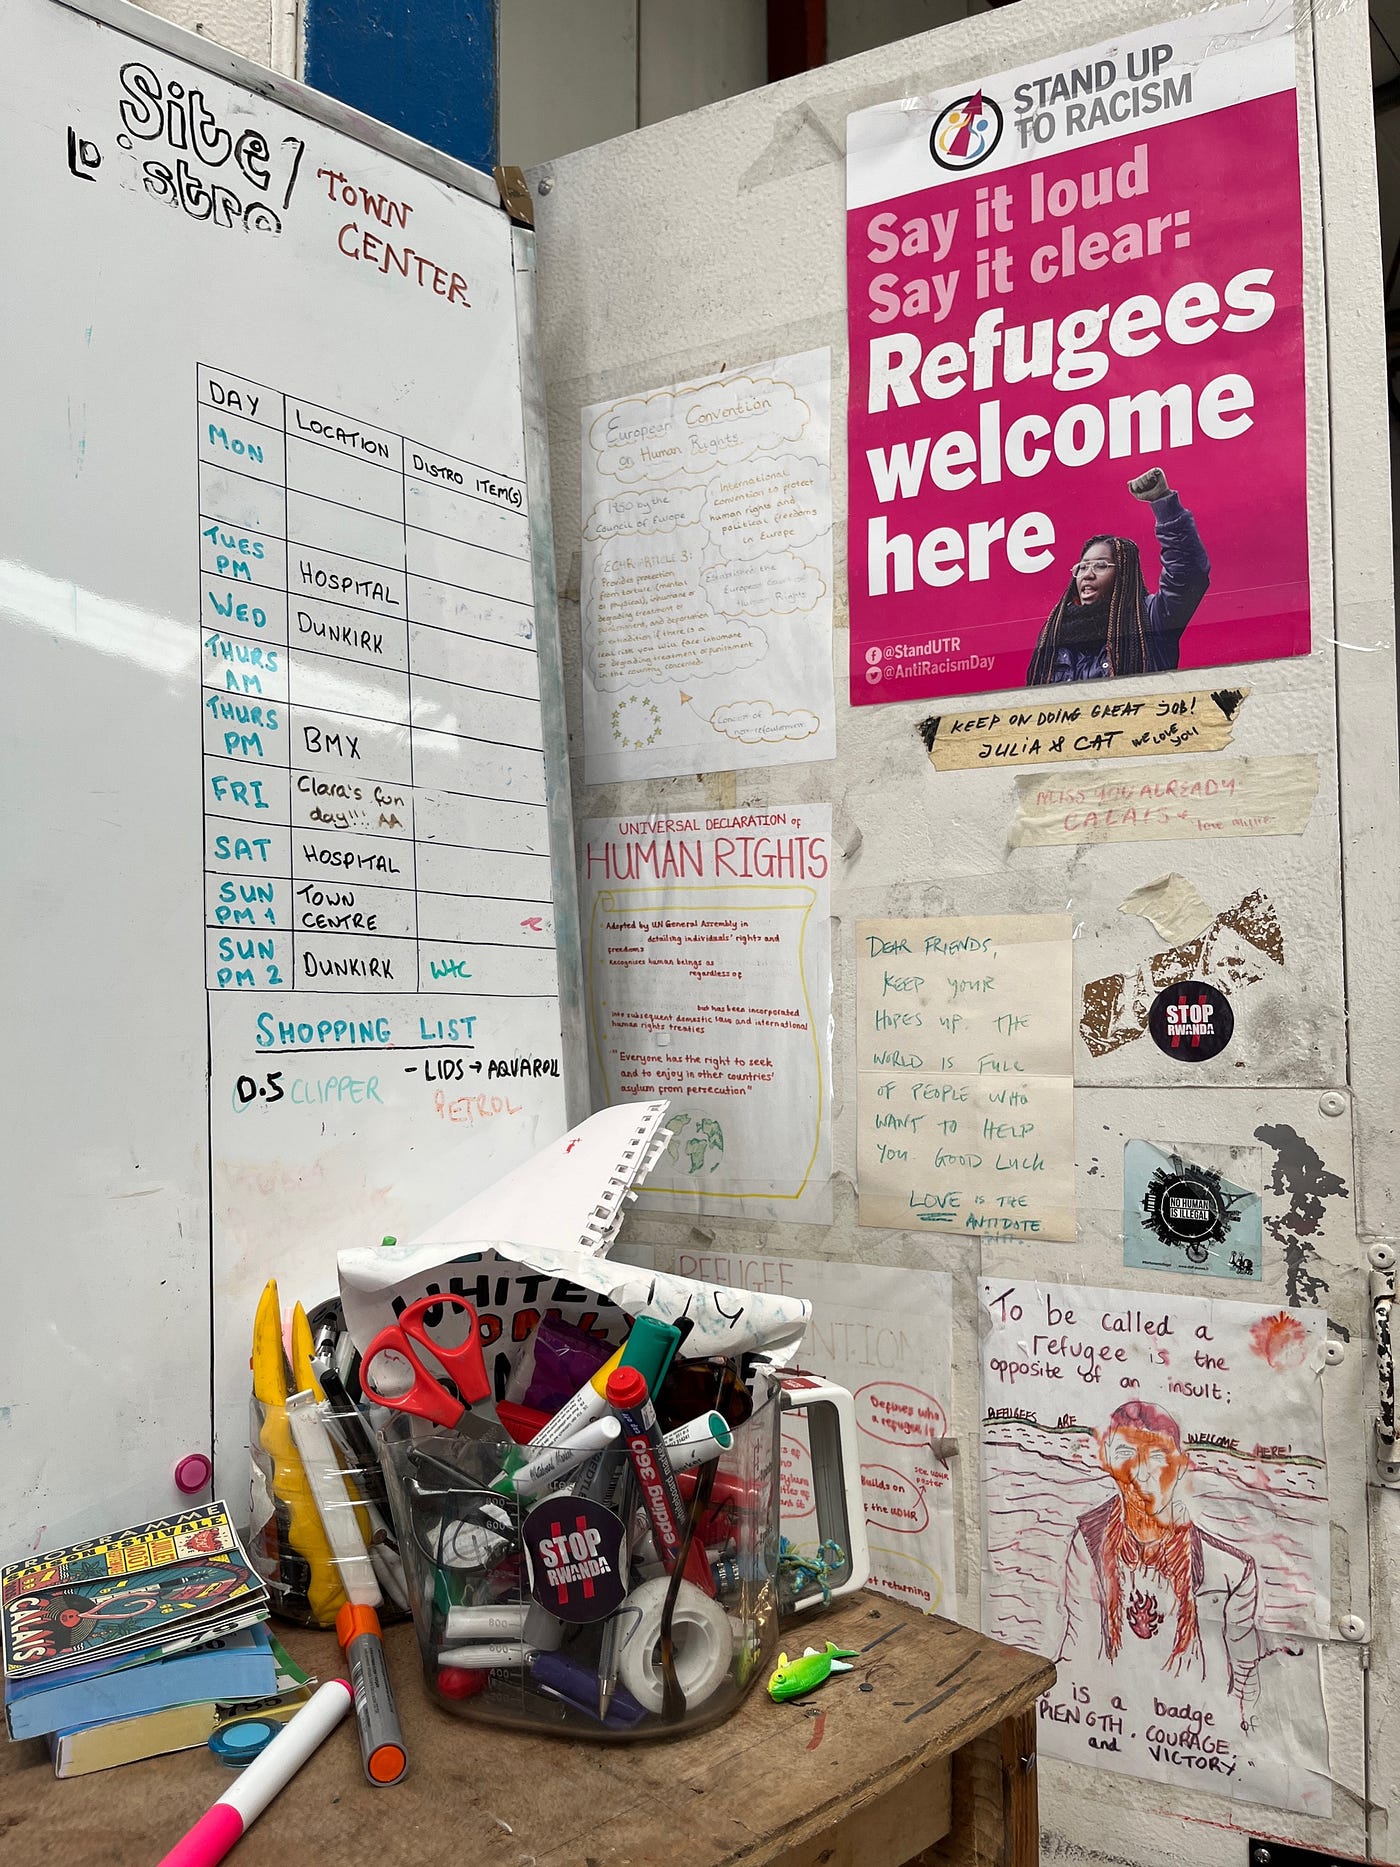 Site/
Distro
TOWN
CENTER
DAY
LOCATION
DISTRO ITEM(S)
MON
TUES
PM
HOSPITAL
WED
DUNKIRK
THURS
AM
THURS
PM
BMX
FRI
Clara's fun
day!!!
SAT
HOSPITAL
SUN
PM 1
TOWN
CENTRE
SUN
PM 2
DUNKIRK
WHC
SHOPPING LIST
0.5 CLIPPER
- LIDS → AQUAROLL
PETROL
European Convention
on Human Rights
1950 by the
Council of Europe
International
convention to protect
human rights and
political freedoms
in Europe
ECHR ARTICLE 3:
Provides protection
from torture (mental
or physical), inhumane or
degrading treatment or
punishment, and deportation
or extradition if there is a
real risk you will face inhumane
or degrading treatment or punishment
in the country concerned.
Established the
European Court of
Human Rights
Concept of
non-refoulement
UNIVERSAL DECLARATION of
HUMAN RIGHTS
Adopted by UN General Assembly in
detailing individuals' rights and
freedoms
Recognises human beings as
regardless of
but has been incorporated
into subsequent domestic laws and international
human rights treaties
"Everyone has the right to seek
and to enjoy in other countries'
asylum from persecution"
STAND UP
TO RACISM
Say it loud
Say it clear:
Refugees
welcome
here
@StandUTR
@AntiRacismDay
KEEP ON DOING GREAT JOB!
JULIA & CAT WE LOVE YOU
MISS YOU ALREADY
CALAIS
love
DEAR FRIENDS,
KEEP YOUR
HOPES UP. THE
WORLD IS FULL
OF PEOPLE WHO
WANT TO HELP
YOU. GOOD LUCK
LOVE IS THE
ANTIDOTE
STOP
RWANDA
NO HUMAN
IS ILLEGAL
REFUGEE
Defines who
a refugee is
Builds on
of the UDHR
see UDHR
poster
not returning
To be called a
refugee is the
opposite of an insult:
REFUGEES ARE
WELCOME HERE!
is a badge of
COURAGE,
and VICTORY."
WHITE
ONLY
edding 360
whiteboard marker
STOP
RWANDA
PROGRAMME
SAISON ESTIVALE
CALAIS